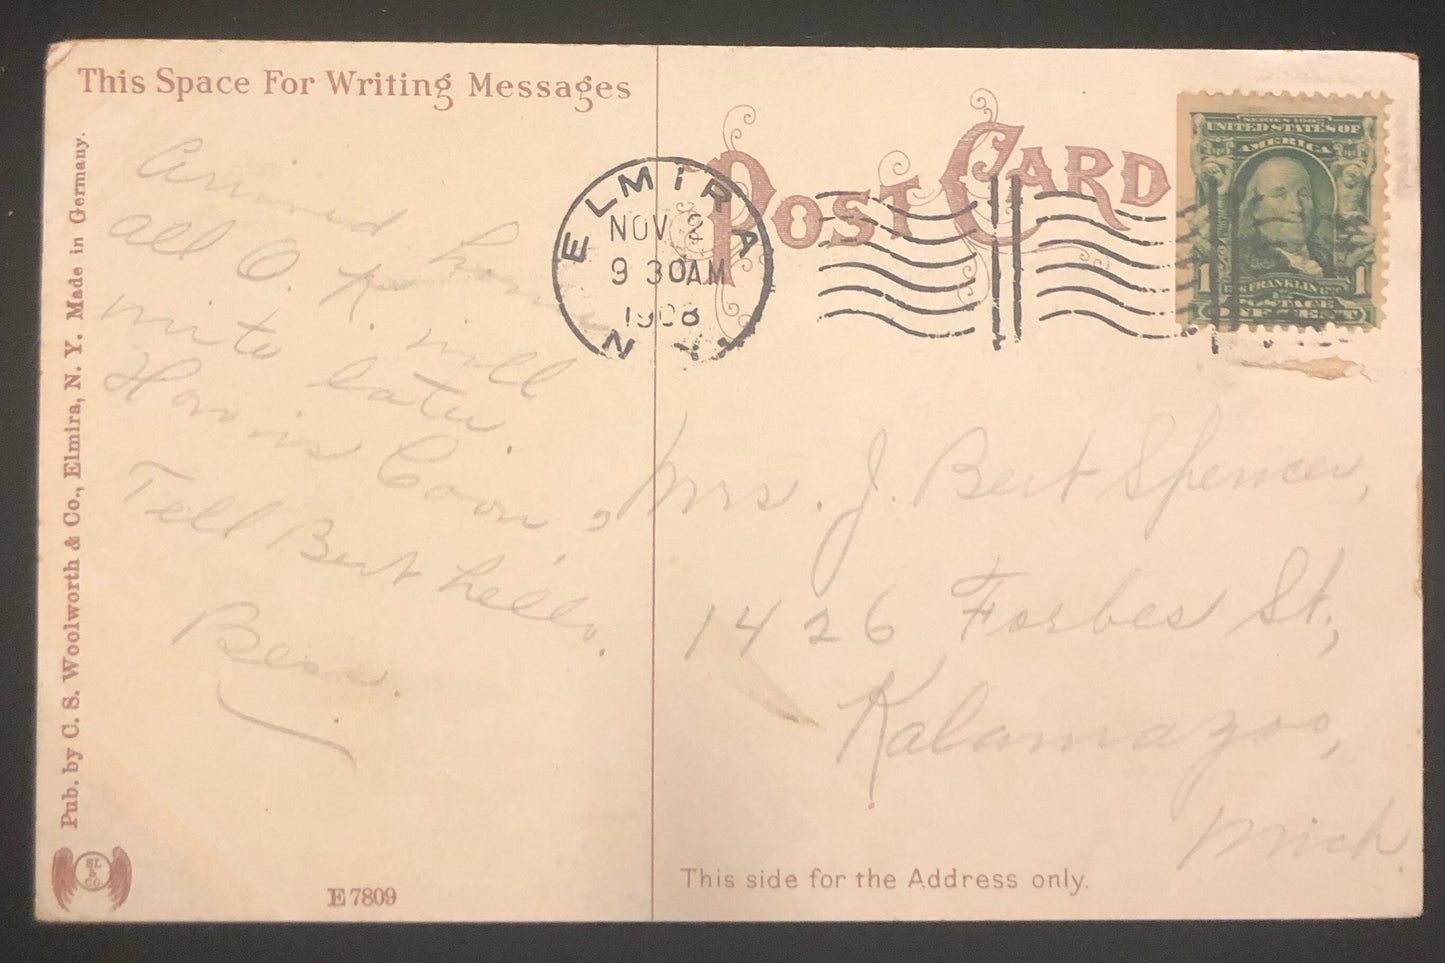 This Space For Writing Messages
Arrived home
all O.K. will
write later.
How is Coon,
Tell Bert hello.
Bess.
Pub. by C. S. Woolworth & Co., Elmira, N. Y. Made in Germany.
SL
&
Co
E 7809
POST CARD
ELMIRA
NOV 2
9 30AM
1908
N.Y.
SERIES 1902
UNITED STATES OF
AMERICA
1 FRANKLIN 1
POSTAGE
ONE CENT
Mrs. J. Bert Spencer,
1426 Forbes St.,
Kalamazoo,
Mich.
This side for the Address only.